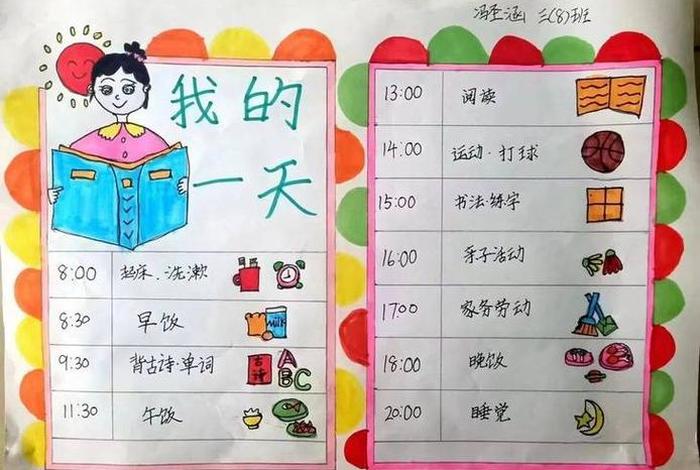 冯圣涵 三(8)班
我的
一天
8:00 起床、洗漱
8:30 早饭 milk
9:30 背古诗·单词 古诗 ABC
11:30 午饭
13:00 阅读
14:00 运动·打球
15:00 书法·练字
16:00 亲子活动
17:00 家务劳动
18:00 晚饭
20:00 睡觉